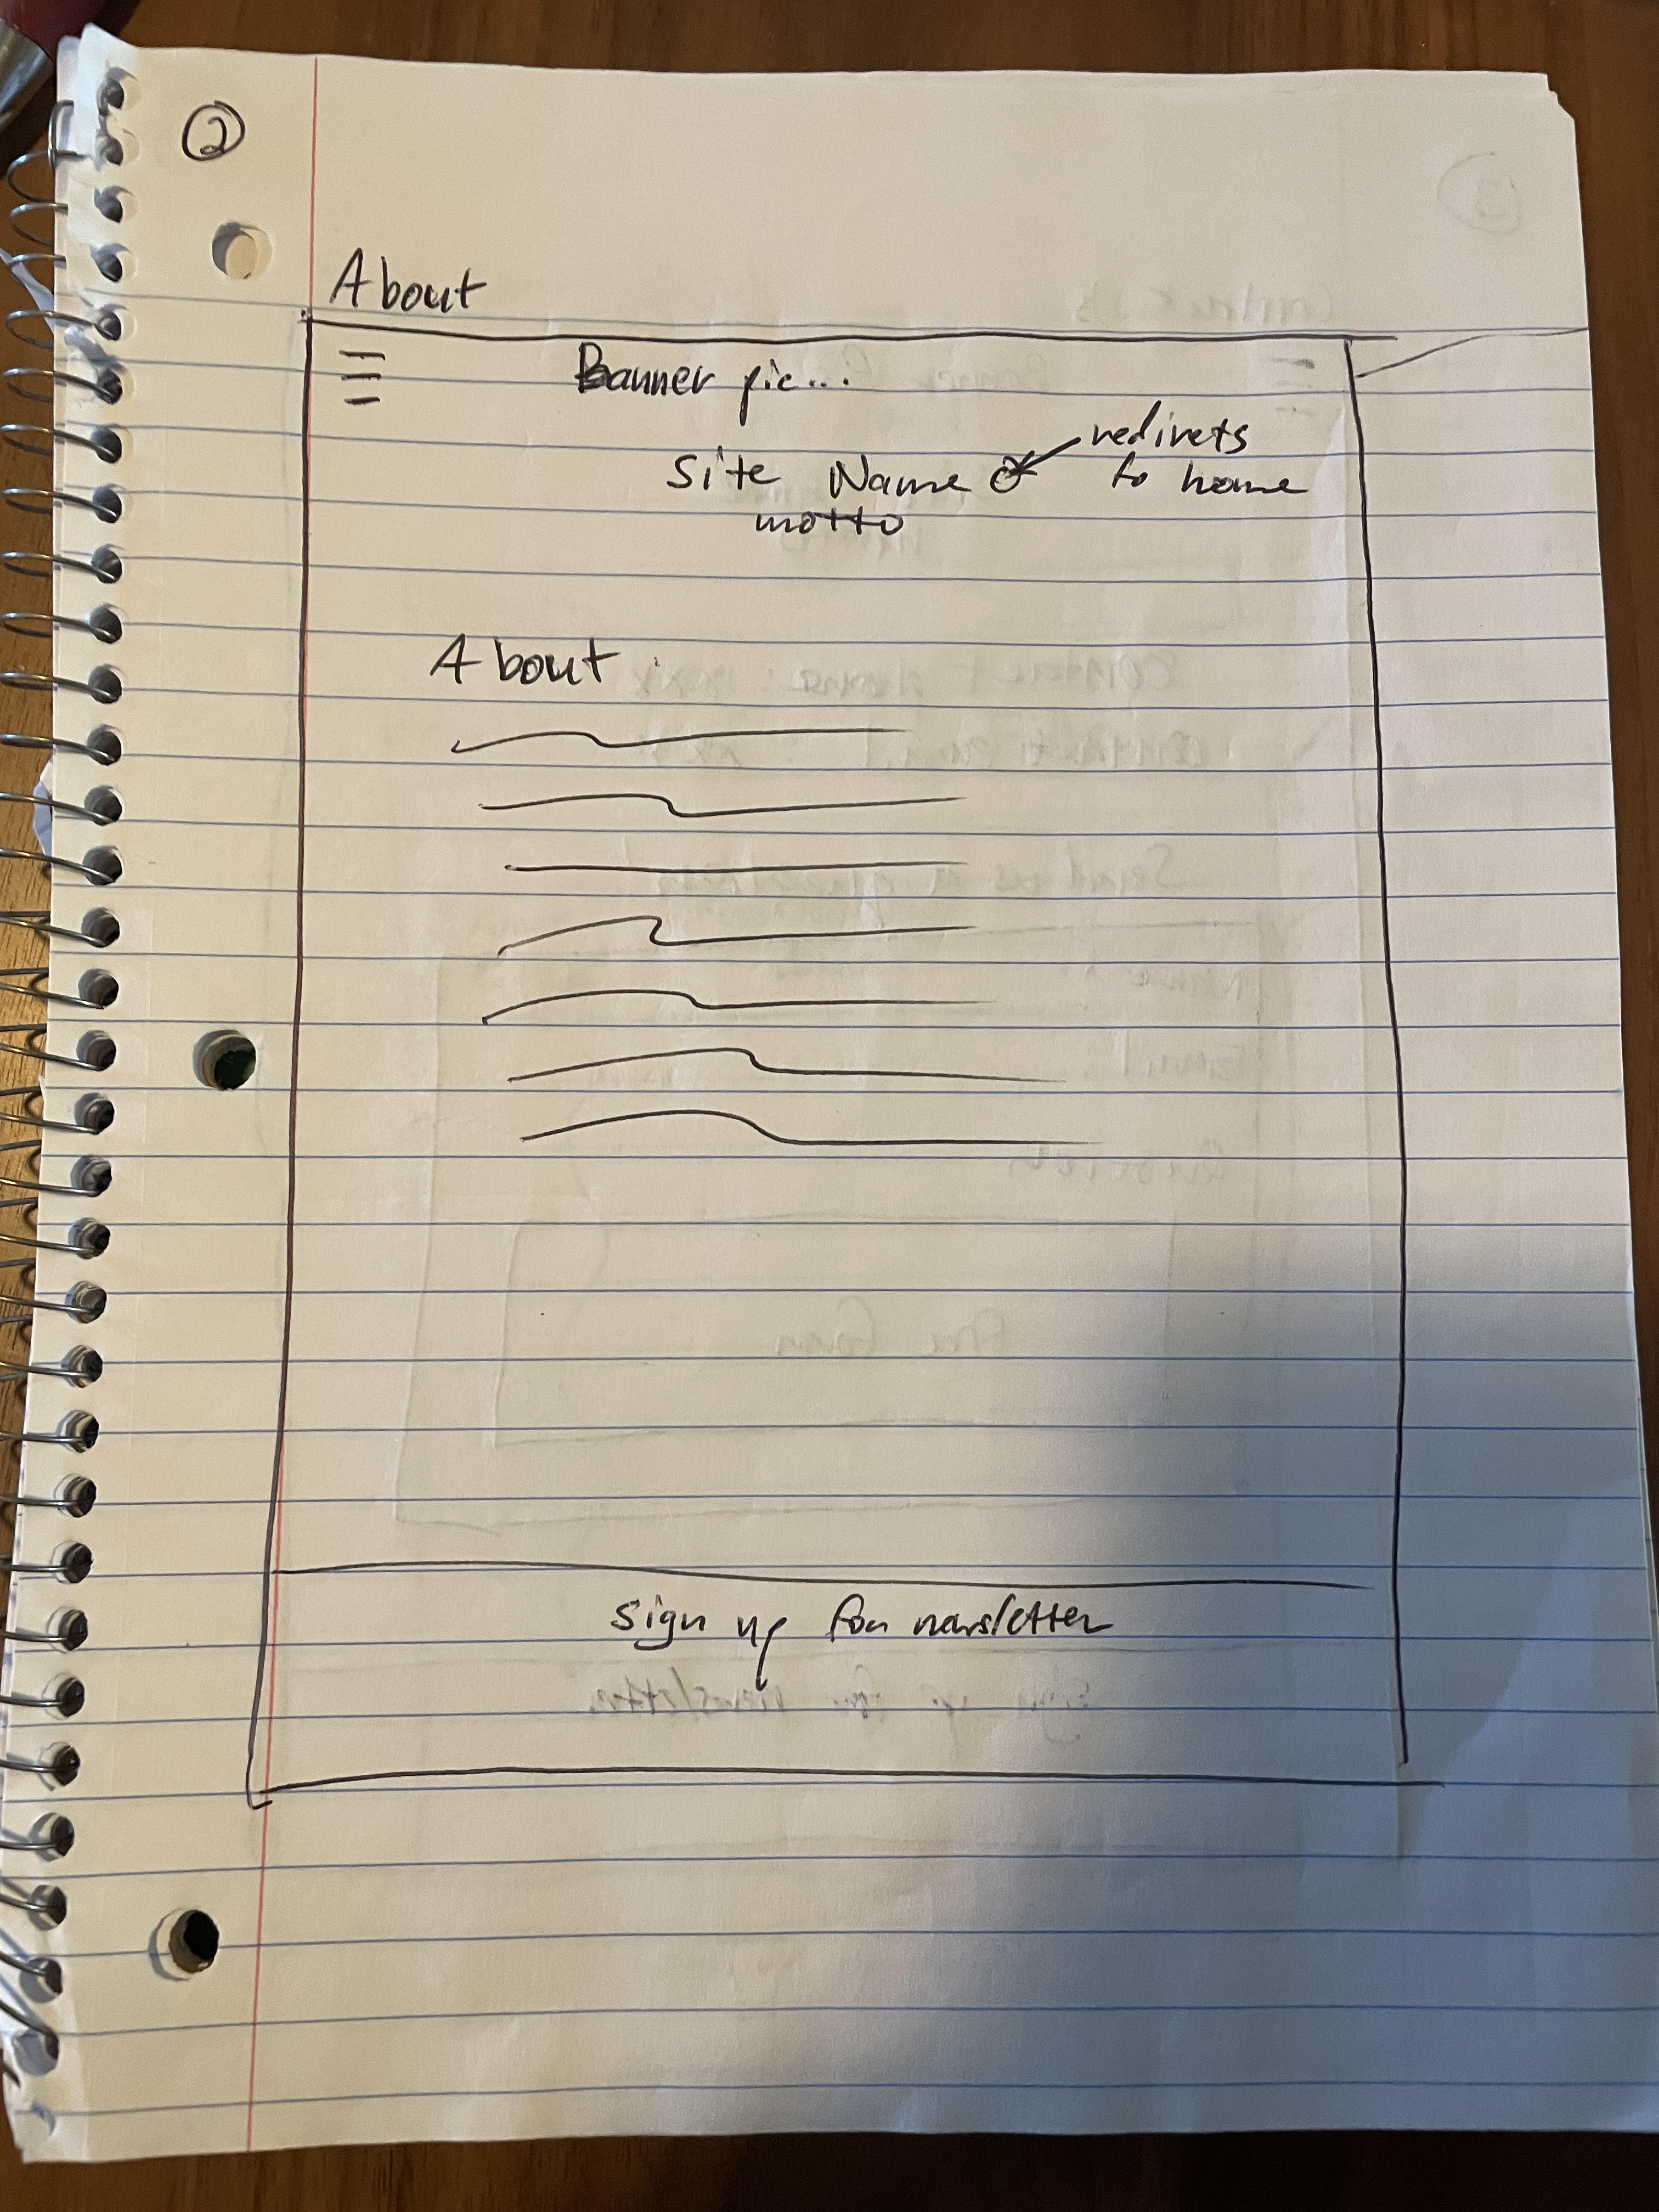 2
About
Banner pic...
Site Name
redirets
to home
motto
About
Sign up for newsletter